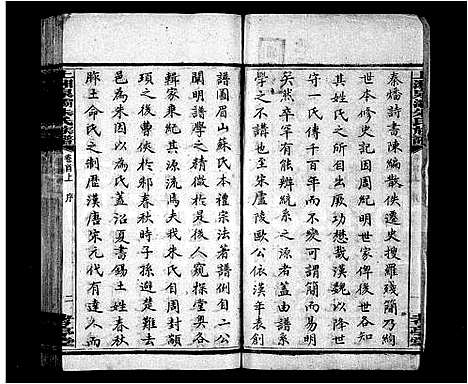 秦燔詩書陳編散佚遷史搜羅殘簡乃絢
世本修史記因周紀明世家俾後世各明
其姓氏之所自出厥功懋哉漢魏以降世
守一氏傳千百年而不可變可謂簡而易明
矣然卒未有能辨統系之源者蓋由譜系
學之不譜也至宋廬陵歐公依漢年表創
譜圖眉山蘇氏本禮宗法著譜例自二公
闡明譜學之精微於是人窺探堂奧各
輯家乘紀其源流焉夫我朱氏自周封顓
頊之後曹俠於邾春秋時子孫避楚難去
邑為朱因以為氏蓋沿夏書錫土姓春秋
胙土命氏之制歷漢唐宋元代有達人而
卷首上
序
二